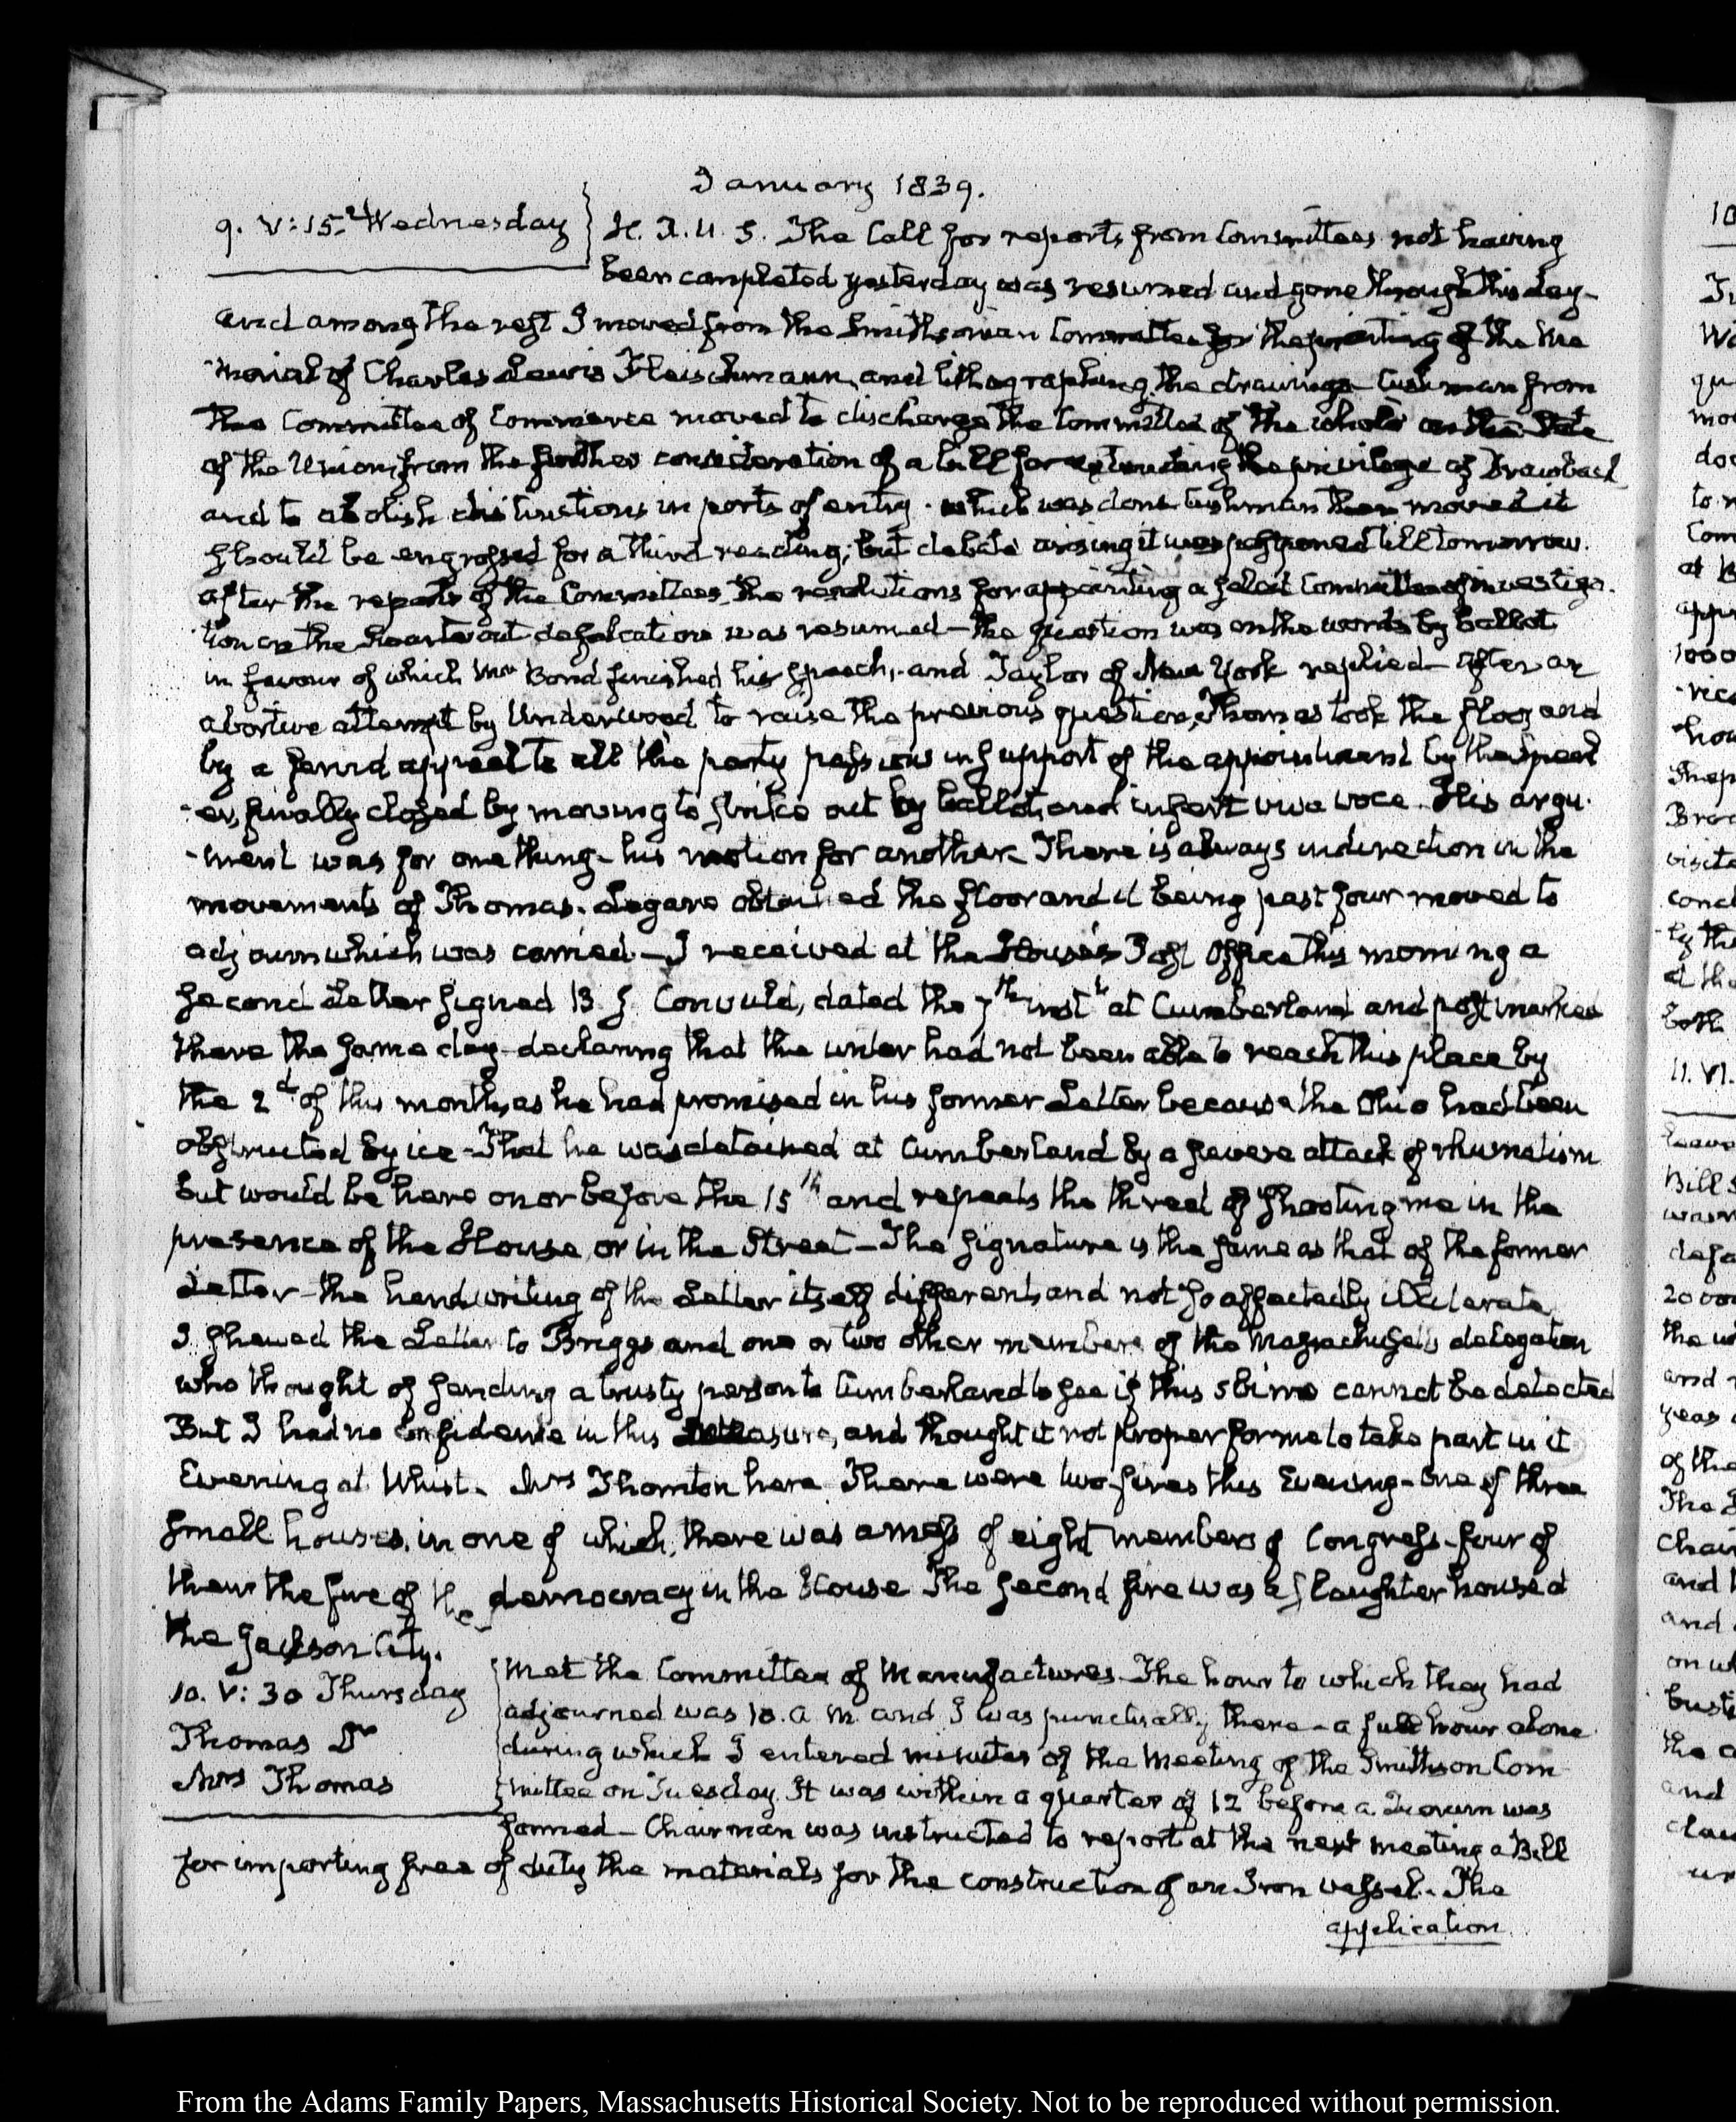 January 1839.
9. V:15. Wednesday
H. R. U. S. The Call for reports from Committees not having
been completed yesterday was resumed and gone through this day-
and among the rest I moved from the Smithsonian Committee for the printing of the Me
-morial of Charles Lewis Fleischmann, and lithographing the drawings- Cushman from
the Committee of Commerce moved to discharge the Committee of the whole on the State
of the Union, from the further consideration of a bill for extending the privilege of Drawback
and to abolish distinctions in ports of entry. which was done. Cushman then moved it
should be engrossed for a third reading; but debate arising it was postponed till tomorrow.
after the reports of the Committees, the resolutions for appointing a select Committee of investiga-
tion on the Swartwout defalcations was resumed- the question was on the words by ballot
in favour of which Mr Bond finished his speech, and Taylor of New York replied- After an
abortive attempt by Underwood to raise the previous question, Thomas took the floor and
by a fervid appeal to all the party passions in support of the appointment by the Speak
-er, finally closed by moving to strike out by ballot, and insert viva voce. His argu-
-ment was for one thing- his motion for another. There is always indirection in the
movements of Thomas. Legare obtained the floor and it being past four moved to
adjourn which was carried.- I received at the House's Post Office this morning a
second Letter signed B. J. Conould, dated the 7th inst at Cumberland and post marked
there the same day- declaring that the writer had not been able to reach this place by
the 2d of this month, as he had promised in his former Letter because the Ohio had been
obstructed by ice- That he was detained at Cumberland by a severe attack of rhumatism
but would be here on or before the 15th and repeats the threat of shooting me in the
presence of the House, or in the Street- The signature is the same as that of the former
Letter- the handwriting of the Letter itself different, and not so affectedly illiterate
I shewed the Letter to Briggs and one or two other members of the Massachusetts delegation
who thought of sending a trusty person to Cumberland to see if this cannot be detected
But I had no confidence in this measure, and thought it not proper for me to take part in it
Evening at Whist. Mrs Thornton here. There were two fires this Evening- One of three
small houses, in one of which, there was a mess of eight members of Congress- four of
them the fire of the democracy in the House The second fire was a slaughter house at
the Jackson City.
10. V:30 Thursday
Thomas Dr
Mrs Thomas
Met the Committee of Manufactures. The hour to which they had
adjourned was 10. a. m. and I was punctually there- a full hour alone
during which I entered minutes of the Meeting of the Smithson Com
mittee on Tuesday. It was within a quarter of 12 before a Quorum was
formed- Chairman was instructed to report at the next meeting a Bill
for importing free of duty the materials for the construction of an Iron vessel- The
application
From the Adams Family Papers, Massachusetts Historical Society. Not to be reproduced without permission.